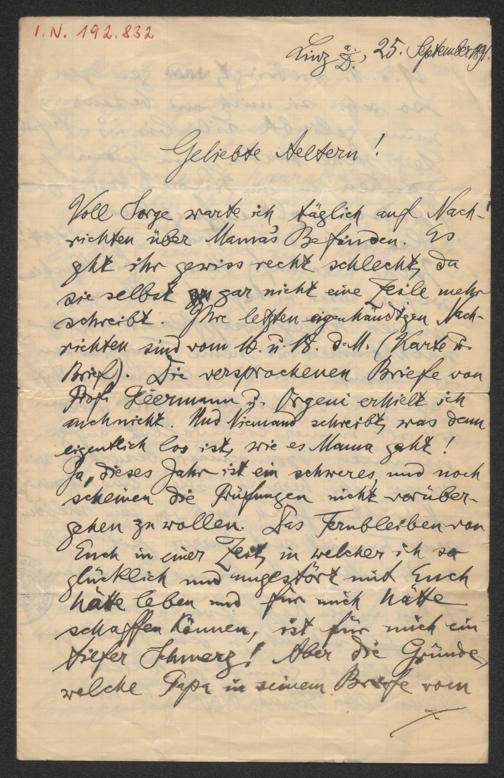 I. N. 192.832
Linz a. D., 25. September 89.
Geliebte Aeltern!
Voll Sorge warte ich täglich auf Nach-
richten über Mamas Befinden. Es
geht ihr gewiss recht schlecht, da
sie selbst gar nicht eine Zeile mehr
schreibt. Ihre letzten eigenhändigen Nach-
richten sind vom 16. u. 18. d. M. (Karte u.
Brief). Die versprochenen Briefe von
Prof. u. Orgeni erhielt ich
auch nicht. Und Niemand schreibt, was denn
eigentlich los ist, wie es Mama geht!
Ja, dieses Jahr ist ein schweres, und noch
scheinen die Prüfungen nicht vorüber-
gehen zu wollen. Das Fernbleiben von
Euch in einer Zeit, in welcher ich so
glücklich und ungestört mit Euch
hätte leben und für mich hätte
schaffen können, ist für mich ein
tiefer Schmerz! Aber die Gründe,
welche Papa in seinem Briefe vom